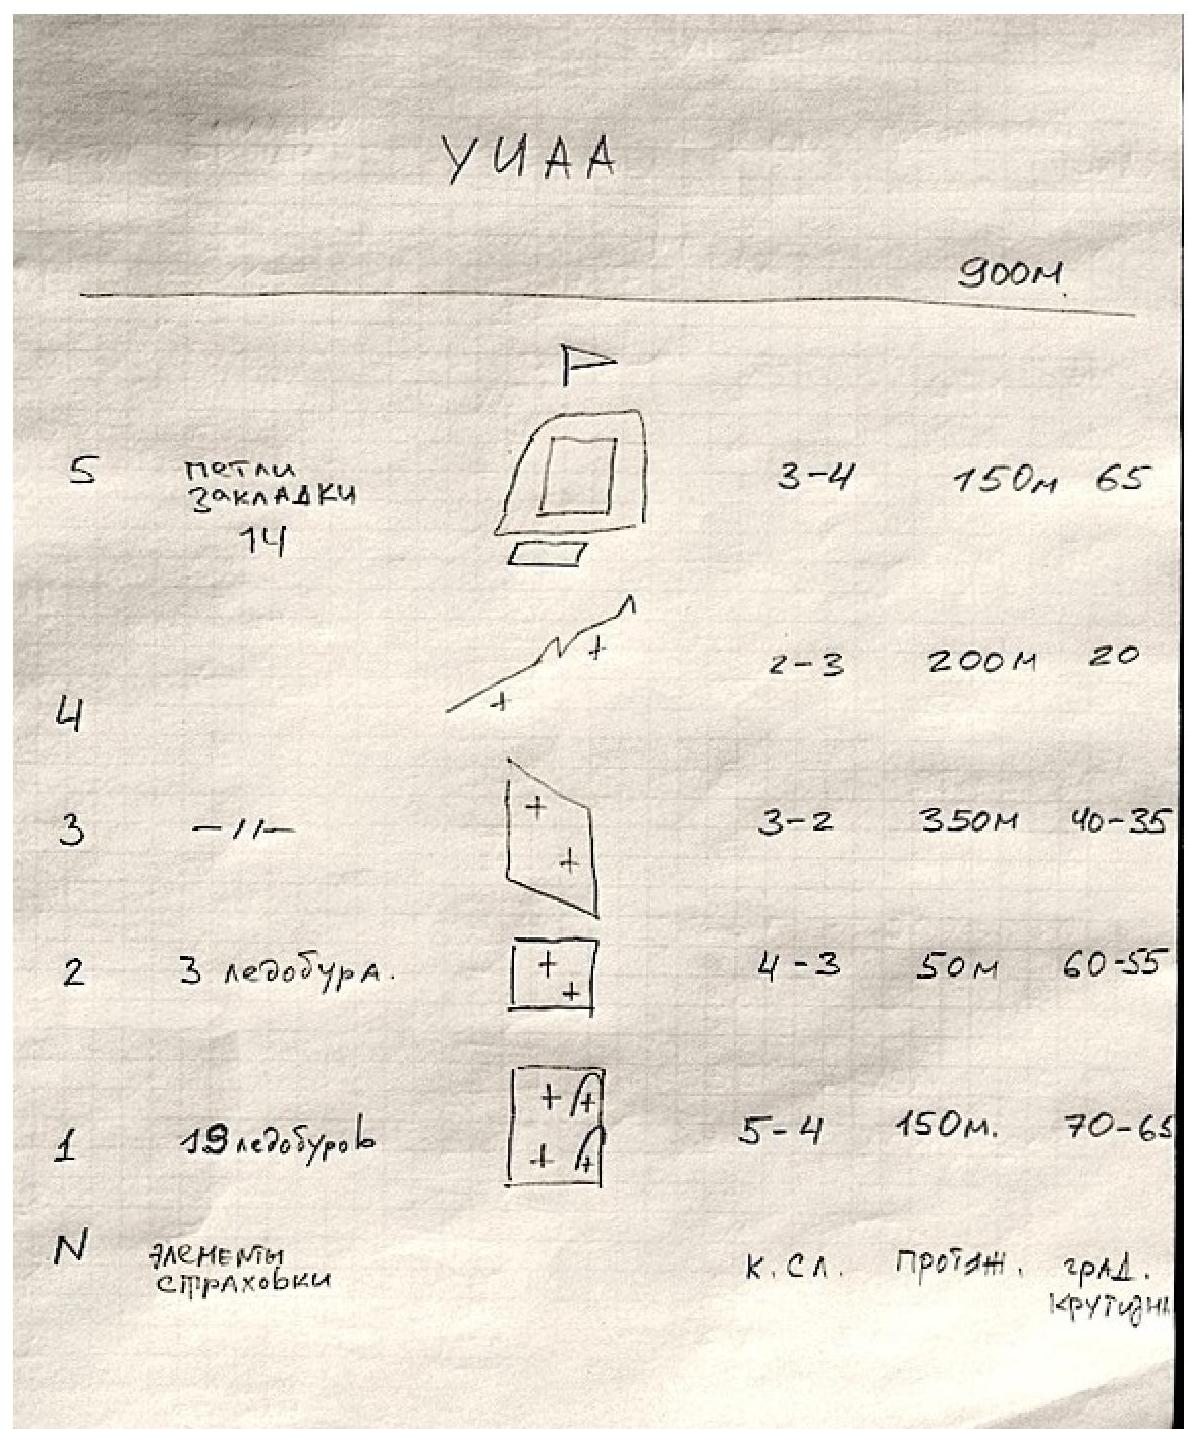 УИАА
900м.
5 петли 3-4 150м 65
закладки
14
2-3 200м 20
4
3 -//- 3-2 350м 40-35
2 3 ледобура. 4-3 50м 60-55
1 19 ледобуров 5-4 150м. 70-65
N элементы к.сл. протяж. град.
страховки
крутизны